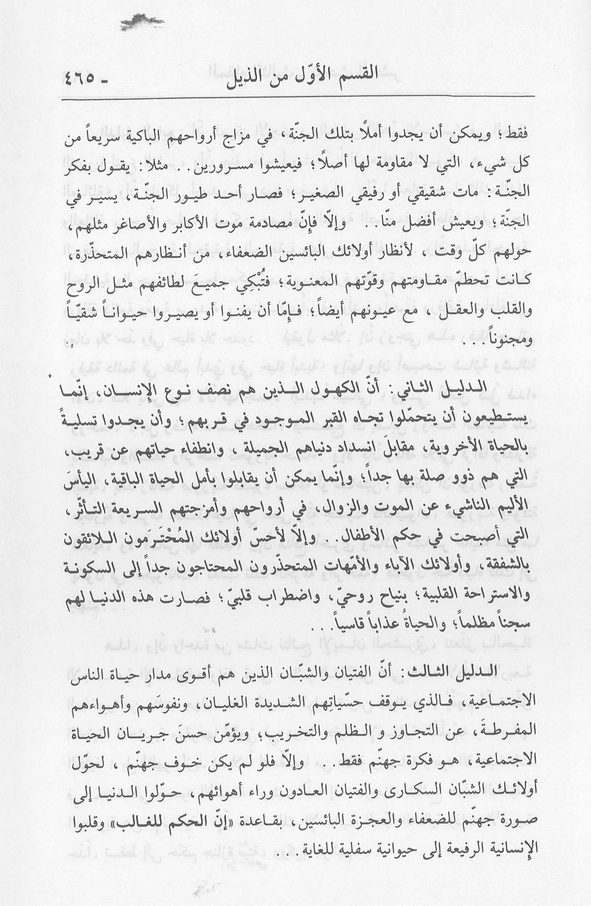 القسم الأوّل من الذيل ـ ٤٦٥
فقط؛ ويمكن أن يجدوا أملاً بتلك الجنّة، في مزاج أرواحهم الباكية سريعاً من
كل شيء، التي لا مقاومة لها أصلاً؛ فيعيشوا مسرورين.. مثلا: يقول بفكر
الجنّة: مات شقيقي أو رفيقي الصغير؛ فصار أحد طيور الجنّة، يسير في
الجنّة؛ ويعيش أفضل منّا.. وإلاّ فإنّ مصادمة موت الأكابر والأصاغر مثلهم،
حولهم كلّ وقت، لأنظار أولائك البائسين الضعفاء، من أنظارهم المتحذّرة،
كانت تحطمّ مقاومتهم وقوّتهم المعنوية؛ فتُبْكِي جميعَ لطائفهم مثل الروح
والقلب والعقل، مع عيونهم أيضاً؛ فإمّا أن يفنوا أو يصيروا حيواناً شقيّاً
ومجنوناً...
الدليل الثاني: أنّ الكهول الذين هم نصف نوع الإنسان، إنّما
يستطيعون أن يتحمّلوا تجاه القبر الموجود في قربهم؛ وأن يجدوا تسليةً
بالحياة الأخروية، مقابلَ انسداد دنياهم الجميلة، وانطفاء حياتهم عن قريب،
التي هم ذوو صلة بها جداً؛ وإنّما يمكن أن يقابلوا بأمل الحياة الباقية، اليأسَ
الأليم الناشيء عن الموت والزوال، في أرواحهم وأمزجتهم السريعة التأثّر،
التي أصبحت في حكم الأطفال.. وإلاّ لأحسّ أولائك المُحْتَرَمون اللائقون
بالشفقة، وأولائك الآباء والأمّهات المتحذّرون المحتاجون جداً إلى السكونة
والاستراحة القلبية؛ بنياح روحيّ، واضطراب قلبيّ؛ فصارت هذه الدنيا لهم
سجناً مظلماً؛ والحياةُ عذاباً قاسياً...
الدليل الثالث: أنّ الفتيان والشبّان الذين هم أقوى مدار حياة الناس
الاجتماعية، فالذي يوقف حسّياتِهم الشديدة الغليان، ونفوسَهم وأهواءهم
المفرطةَ، عن التجاوز و الظلم والتخريب؛ ويؤمّن حسنَ جريان الحياة
الاجتماعية، هو فكرة جهنّم فقط.. وإلاّ فلو لم يكن خوف جهنّم، لحوّل
أولائك الشبّان السكارى والفتيان العادون وراء أهوائهم، حوّلوا الدنيا إلى
صورة جهنّم للضعفاء والعجزة البائسين، بقاعدة «إنّ الحكم للغالب» وقلبوا
الإنسانية الرفيعة إلى حيوانية سفلية للغاية...